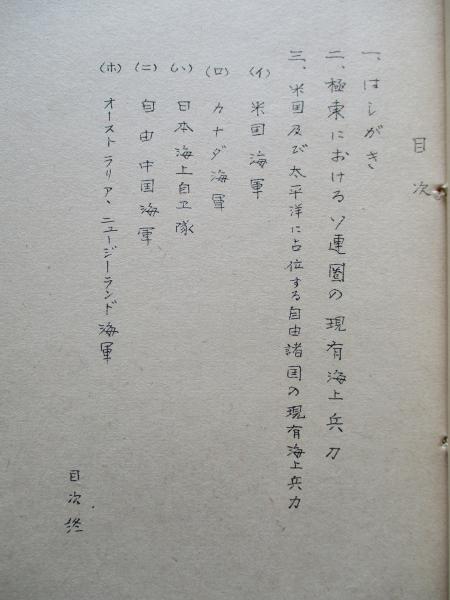 目次
一、はしがき
二、極東におけるソ連圏の現有海上兵力
三、米国及び太平洋に占位する自由諸国の現有海上兵力
(イ) 米国海軍
(ロ) カナダ海軍
(ハ) 日本海上自卫隊
(ニ) 自由中国海軍
(ホ) オーストラリア、ニュージーランド海軍
目次終